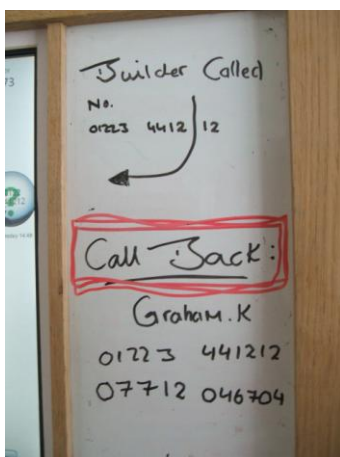 Builder Called
No.
01223 4412 12
Call Back:
Graham.K
01223 441212
07712 046704